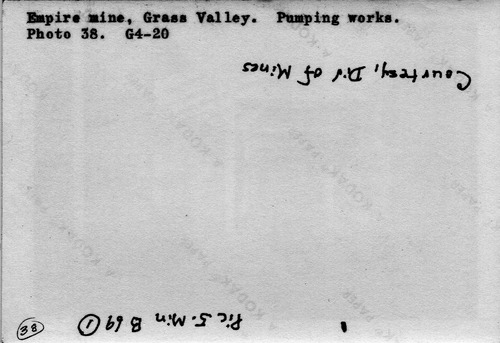 Empire mine, Grass Valley. Pumping works.
Photo 38. G4-20
Courtesy, Div of Mines
A KODAK PAPER
Pic 5. Min B 69 1
38